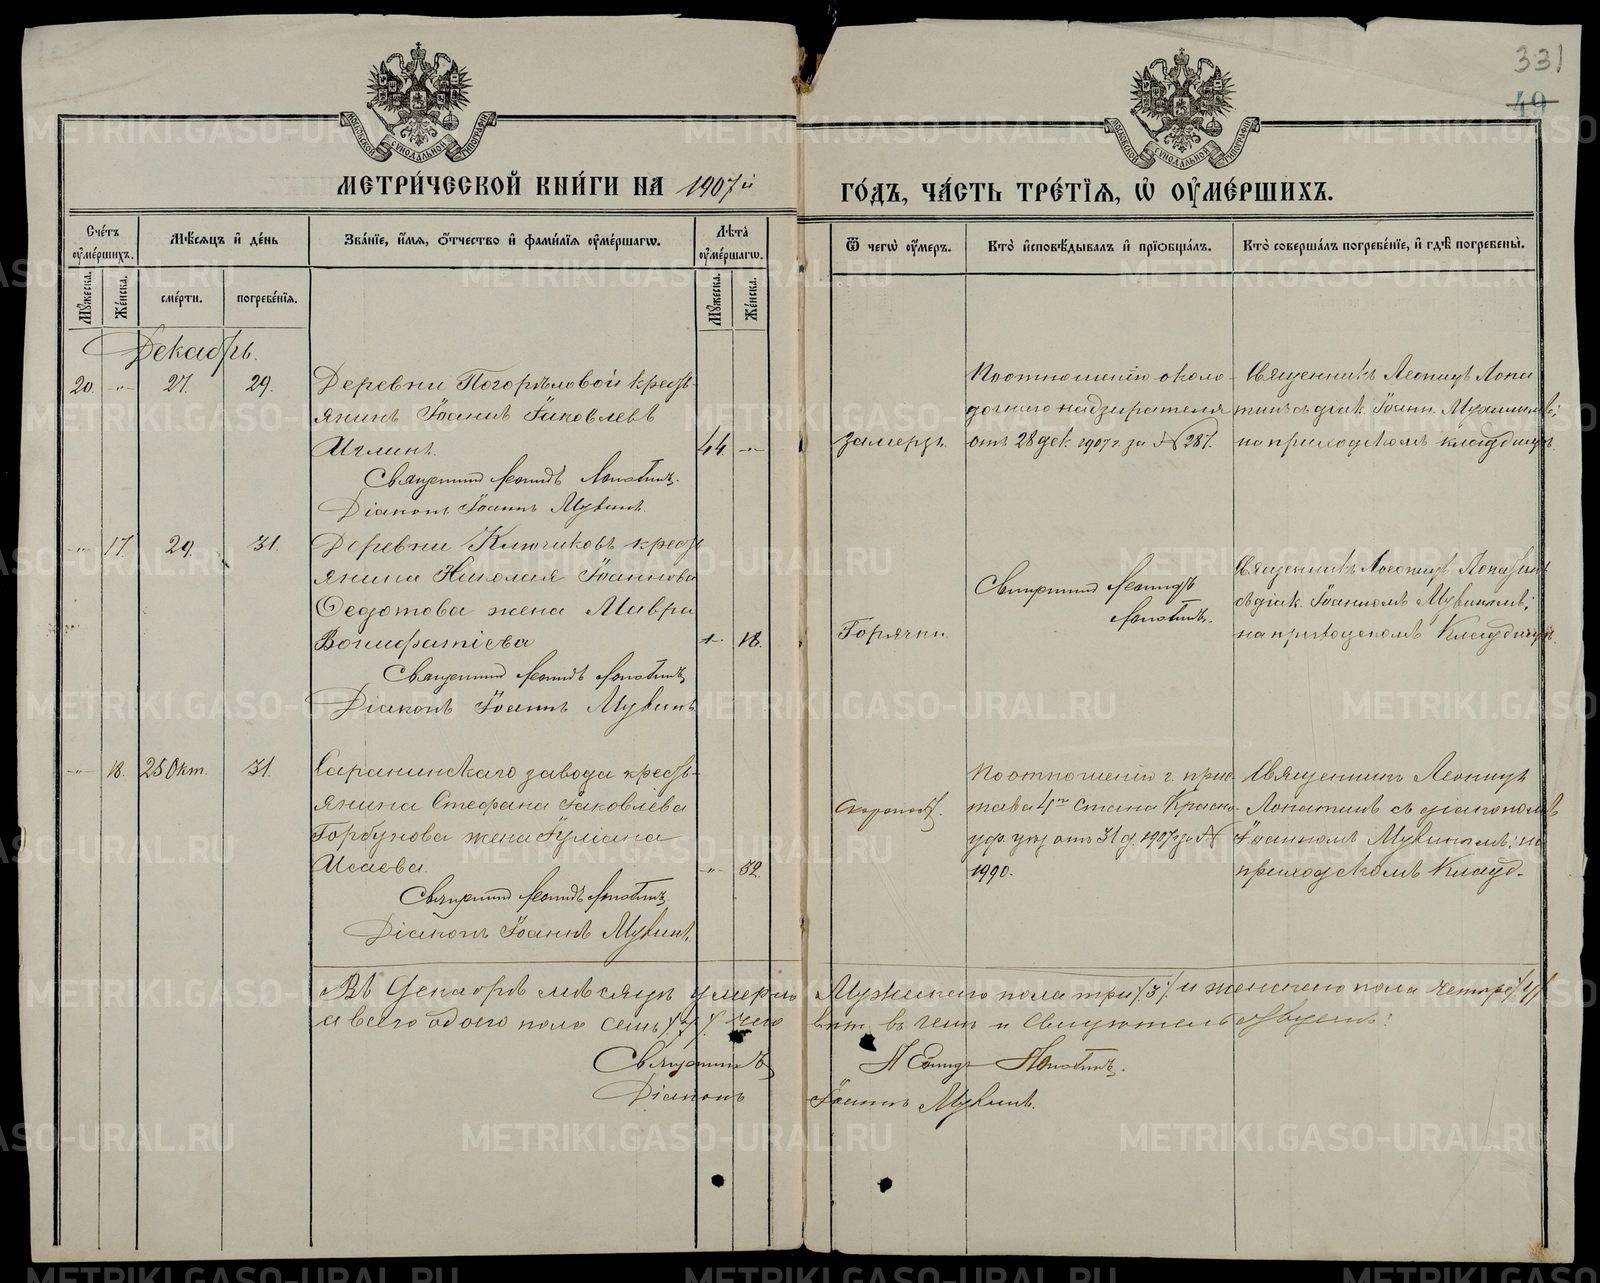 331
49
МОСКОВСКОЙ СУНОДАЛЬНОЙ ТИПОГРАФІИ
МОСКОВСКОЙ СУНОДАЛЬНОЙ ТИПОГРАФІИ
МЕТРИ́ЧЕСКОЙ КНИ́ГИ НА 1907й
ГО́ДЪ, ЧА́СТЬ ТРЕ́ТІѦ, Ѡ҆ ОУ҆МЕ́РШИХЪ.
Сче́тъ оу҆ме́ршихъ.
Мѣ́сяцъ и҆ де́нь
Зва́нїе, и҆́мя, о҆́тчество и҆ фами́лїя оу҆ме́ршагѡ.
Лѣ́та оу҆ме́ршагѡ.
Ѿ чегѡ̀ оу҆́меръ.
Кто̀ и҆сповѣ́дывалъ и҆ прїѡбща́лъ.
Кто̀ соверша́лъ погребе́нїе, и҆ гдѣ̀ погребены̀.
Му́жеска.
Же́нска.
сме́рти.
погребе́нїя.
Му́жеска.
Же́нска.
Декабрь.
20. -"- 27. 29.
Деревни Погорѣловой кресть
янинъ Іоаннъ Іаковлевъ
Иглинъ. 44 -"-
Священникъ Леонидъ Лопатинъ.
Діаконъ Іоаннъ Мувинъ.
замерзъ.
По отношенію около-
дочнаго надзирателя
отъ 28 дек. 1907 г. за № 287.
Священникъ Леонидъ Лопа
тинъ съ діак. Іоанн.
на приходскомъ кладбищѣ
-"- 17. 29. 31.
Деревни Ключиковъ кресть
янина Николая Іоаннова
Федотова жена Мавра
Вонифатіева 18.
Священникъ Леонидъ Лопатинъ,
Діаконъ Іоаннъ Мувинъ
Горячки.
Священникъ Леонидъ
Лопатинъ.
Священникъ Леонидъ Лопатинъ
съ діак. Іоанномъ Мувинымъ;
на приходскомъ кладбищѣ.
-"- 18. 25 Окт. 31.
Саранинскаго завода кресть-
янина Стефана Іаковлева
Горбунова жена Іуліана
Исаева. -"- 32.
Священникъ Леонидъ Лопатинъ,
Діаконъ Іоаннъ Мувинъ.
По отношенію г. прис-
тава 4го стана Красно-
уф. уѣз. отъ 31 д. 1907 г. за №
1990.
Священникъ Леонидъ
Лопатинъ съ діакономъ
Іоанномъ Мувинымъ; на
приходскомъ кладб.
Въ Декабрѣ мѣсяцѣ умерло Мужескаго пола три /3/ и женскаго пола четыре /4/
а всего обоего пола семь /7/. въ чемъ и свидѣтельствуемъ:
Священникъ Леонидъ Лопатинъ.
Діаконъ Іоаннъ Мувинъ.
METRIKI.GASO-URAL.RU